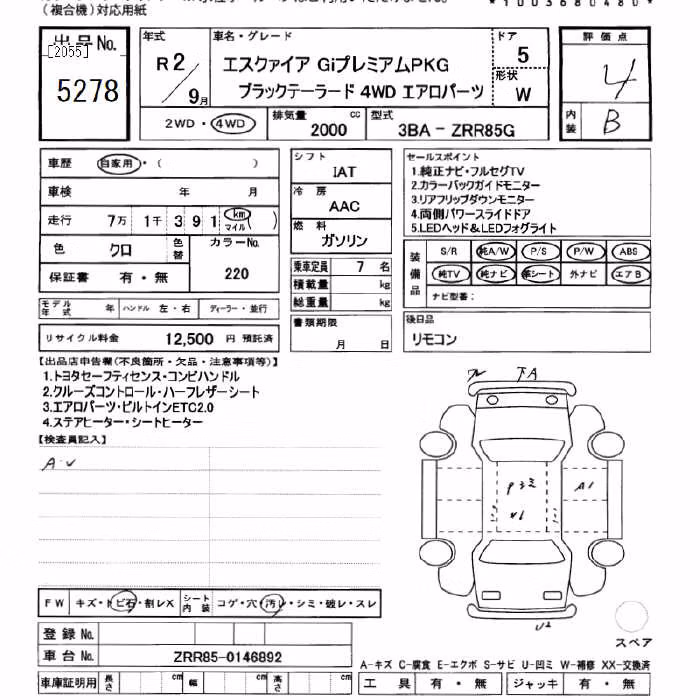 （複合機）対応用紙
*1003680480*
出品No.
[2055]
5278
年式
R2/9月
車名・グレード
エスクァイア GiプレミアムPKG
ブラックテーラード 4WD エアロパーツ
ドア
5
形状
W
評価点
4
内装
B
2WD・4WD
排気量
2000
cc
型式
3BA - ZRR85G
車歴 自家用・（ ）
車検 年 月
走行 7万 1千 3 9 1 km マイル
色 クロ 色替 カラーNo.
220
保証書 有・無
モデル年式 年 ハンドル 左・右 ディーラー・並行
リサイクル料金 12,500 円 預託済
シフト
IAT
冷房
AAC
燃料
ガソリン
乗車定員 7 名
積載量 kg
総重量 kg
書類期限
月 日
セールスポイント
1.純正ナビ・フルセグTV
2.カラーバックガイドモニター
3.リアフリップダウンモニター
4.両側パワースライドドア
5.LEDヘッド&LEDフォグライト
装備品
S/R 純A/W P/S P/W ABS
純TV 純ナビ 革シート 外ナビ エアB
ナビ型番：
後日品
リモコン
【出品店申告欄(不良箇所・欠品・注意事項等)】
1.トヨタセーフティセンス・コンビハンドル
2.クルーズコントロール・ハーフレザーシート
3.エアロパーツ・ビルトインETC2.0
4.ステアヒーター・シートヒーター
【検査員記入】
A・U
FW キズ・トビ石・割レX シート内装 コゲ・穴・汚レ・シミ・破レ・スレ
登録No.
車台No. ZRR85-0146892
車庫証明用 長さ cm 幅 cm 高さ cm
下A
A1
U1
U2
スペア
A-キズ C-腐食 E-エクボ S-サビ U-凹ミ W-補修 XX-交換済
工具 有・無 ジャッキ 有・無